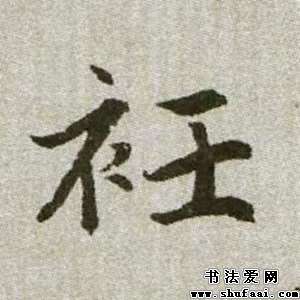 衽
书法爱网
www.shufaai.com